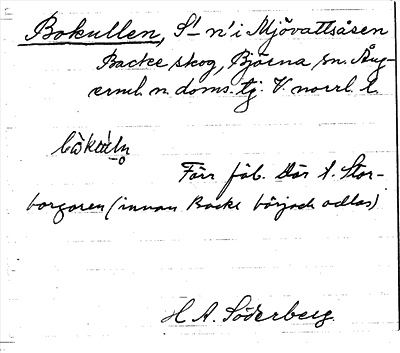 Bokullen, S¹⁻ n' i Mjövattsåsen
Backe skog, Björna sn. Ång-
erml. n. doms. tj. V. norrl. l.
Förr fäb. Där l. Stor-
borgaren (innan Backe började odlas)
H A. Söderberg.